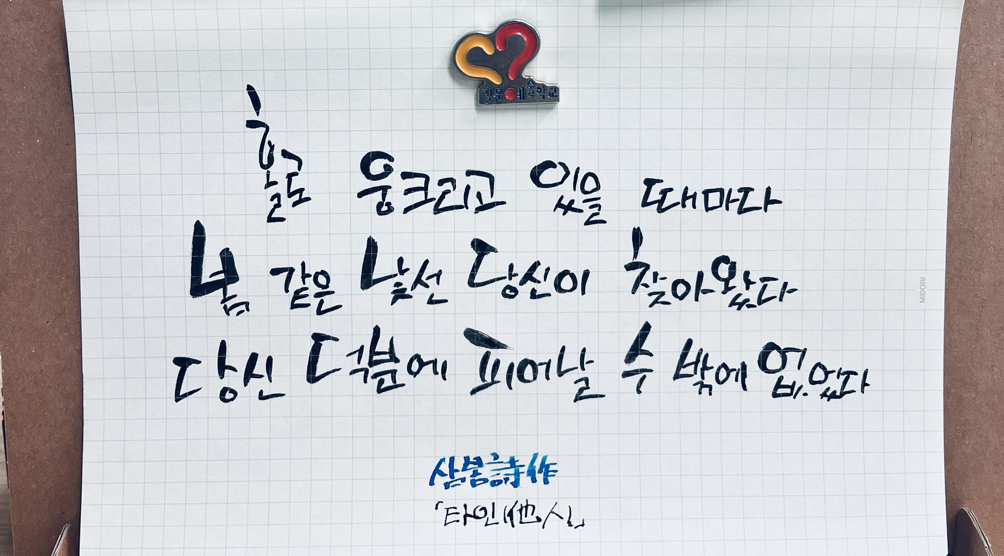 홀로 웅크리고 있을 때마다
봄 같은 낯선 당신이 찾아왔다
당신 덕분에 피어날 수 밖에 없었다
삼봄詩作
「타인他人」
MIDORI